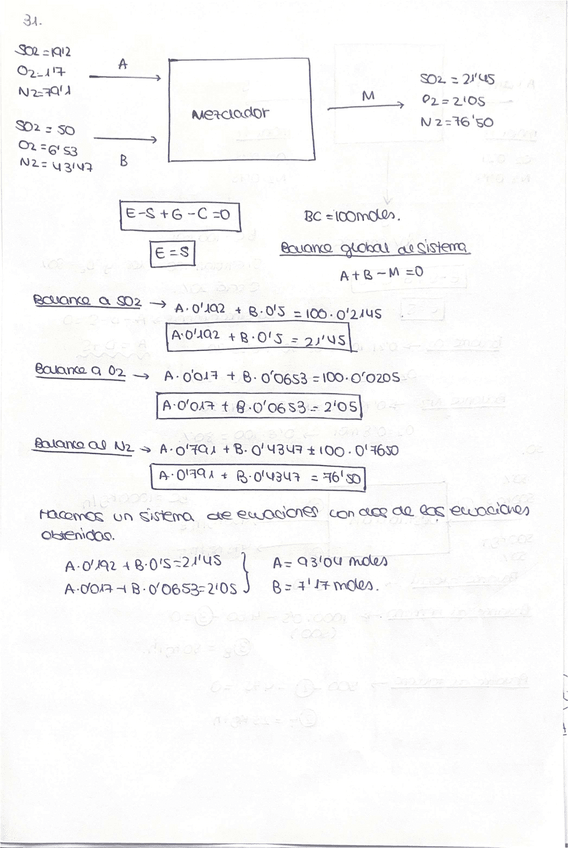 31.
SO2 = 19'2
O2 = 1'7
N2 = 79'1
A
SO2 = 50
O2 = 6'53
N2 = 43'47
B
Mezclador
M
SO2 = 21'45
O2 = 2'05
N2 = 76'50
E-S+G-C=0
BC = 100 moles.
E = S
Balance global al sistema
A+B-M=0
Balance a SO2 → A·0'192 + B·0'5 = 100·0'2145
A·0'192 + B·0'5 = 21'45
Balance a O2 → A·0'017 + B·0'0653 = 100·0'0205
A·0'017 + B·0'0653 = 2'05
Balance al N2 → A·0'791 + B·0'4347 = 100·0'7650
A·0'791 + B·0'4347 = 76'50
Hacemos un sistema de ecuaciones con dos de las ecuaciones
obtenidas.
A·0'192 + B·0'5 = 21'45
A·0'017 + B·0'0653 = 2'05
A = 93'04 moles
B = 7'17 moles.